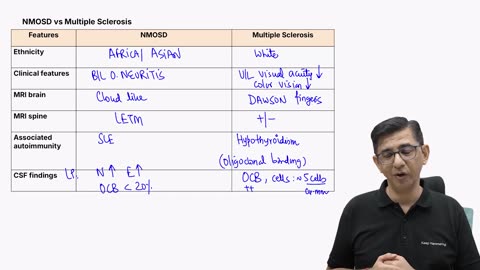 NMOSD vs Multiple Sclerosis
Features NMOSD Multiple Sclerosis
Ethnicity AFRICA/ ASIAN White
Clinical features B/L O. NEURITIS U/L visual acuity ↓
color vision ↓
MRI brain Cloud like DAWSON fingers
MRI spine LETM +/−
Associated autoimmunity SLE Hypothyroidism
(oligoclonal binding)
CSF findings LP: N↑ E↑ OCB, cells: ~5 cells
OCB < 20% ++ cu.mm